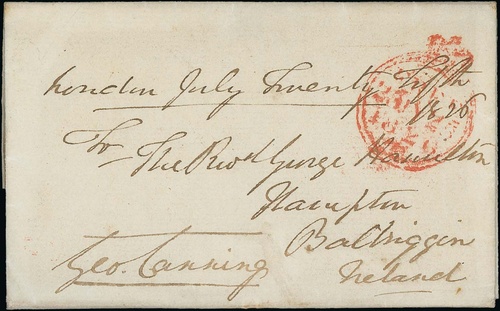 London July Twenty Fifth
1826
To
The Revd George Hamilton
Hampton
Balbriggin
Ireland
Geo. Canning